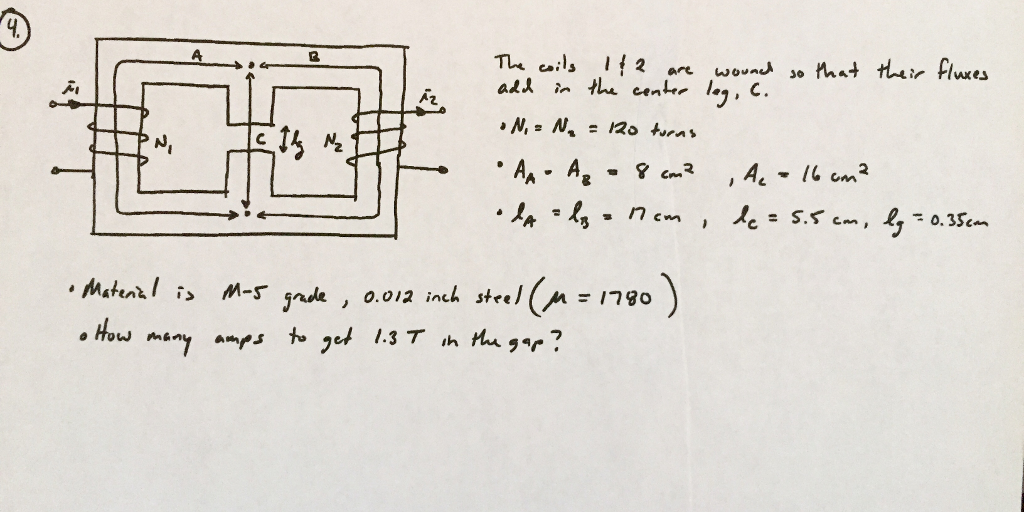 4.
A
B
i1
i2
N1
C
lg
N2
The coils 1 & 2 are wound so that their fluxes
add in the center leg, C.
• N1 = N2 = 120 turns
• AA = AB = 8 cm2 , Ac = 16 cm2
• lA = lB = 17 cm , lc = 5.5 cm, lg = 0.35cm
• Material is M-5 grade, 0.012 inch steel (μ = 1780)
• How many amps to get 1.3 T in the gap?